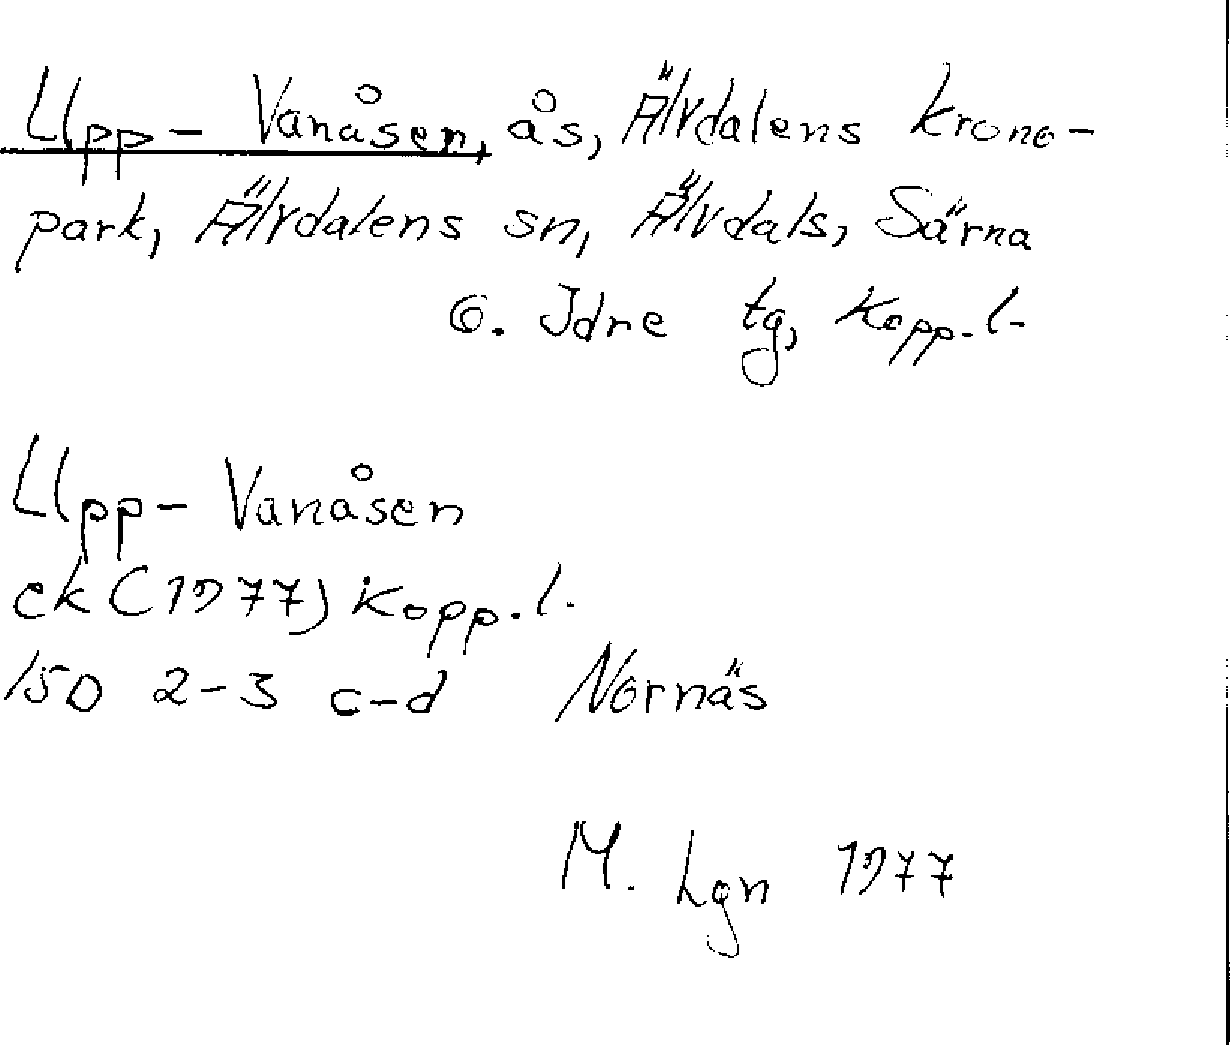 Upp-Vanåsen, ås, Älvdalens krono-
park, Älvdalens sn, Älvdals, Särna
o. Idre tg, Kopp. l.
Upp-Vanåsen
ek (1977) Kopp. l.
15D 2-3 c-d Nornäs
M. Lgn 1977